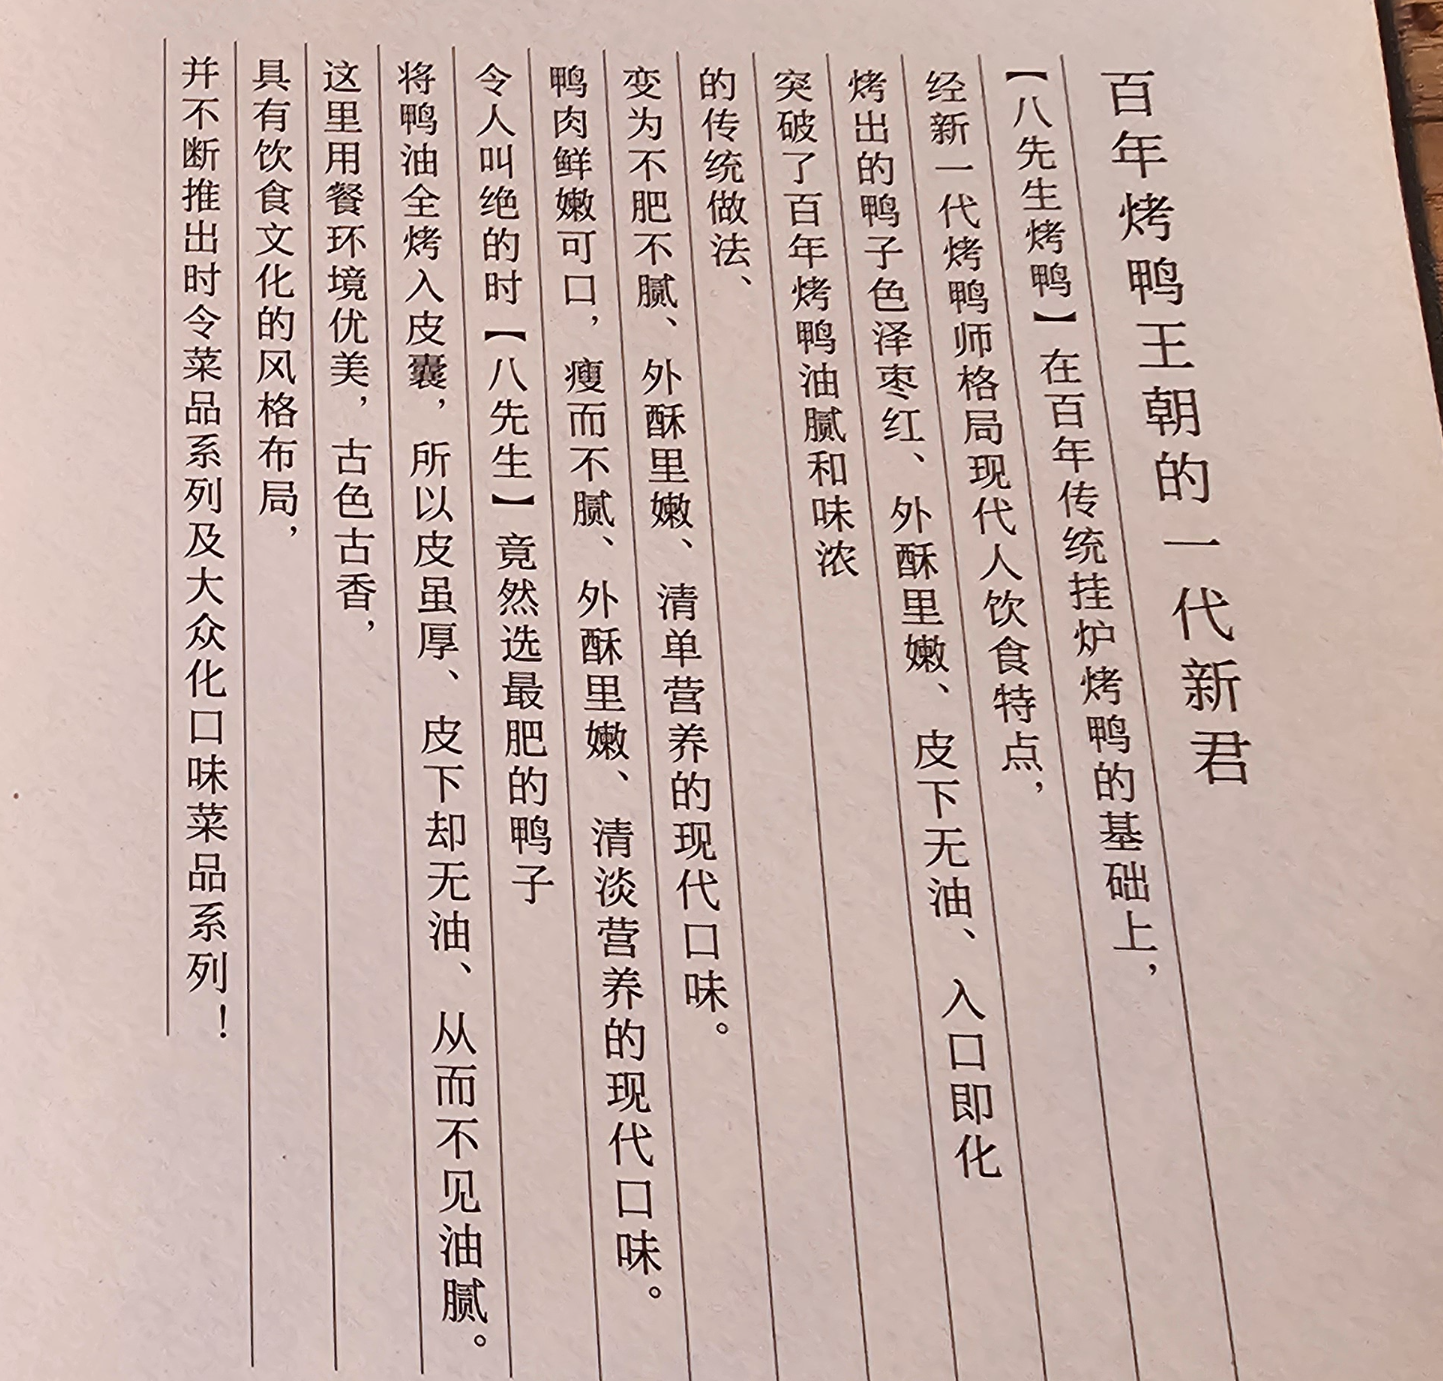 百年烤鸭王朝的一代新君
【八先生烤鸭】在百年传统挂炉烤鸭的基础上，
经新一代烤鸭师格局现代人饮食特点，
烤出的鸭子色泽枣红、外酥里嫩、皮下无油、入口即化
突破了百年烤鸭油腻和味浓
的传统做法、
变为不肥不腻、外酥里嫩、清单营养的现代口味。
鸭肉鲜嫩可口，瘦而不腻、外酥里嫩、清淡营养的现代口味。
令人叫绝的时【八先生】竟然选最肥的鸭子
将鸭油全烤入皮囊，所以皮虽厚、皮下却无油、从而不见油腻。
这里用餐环境优美，古色古香，
具有饮食文化的风格布局，
并不断推出时令菜品系列及大众化口味菜品系列！